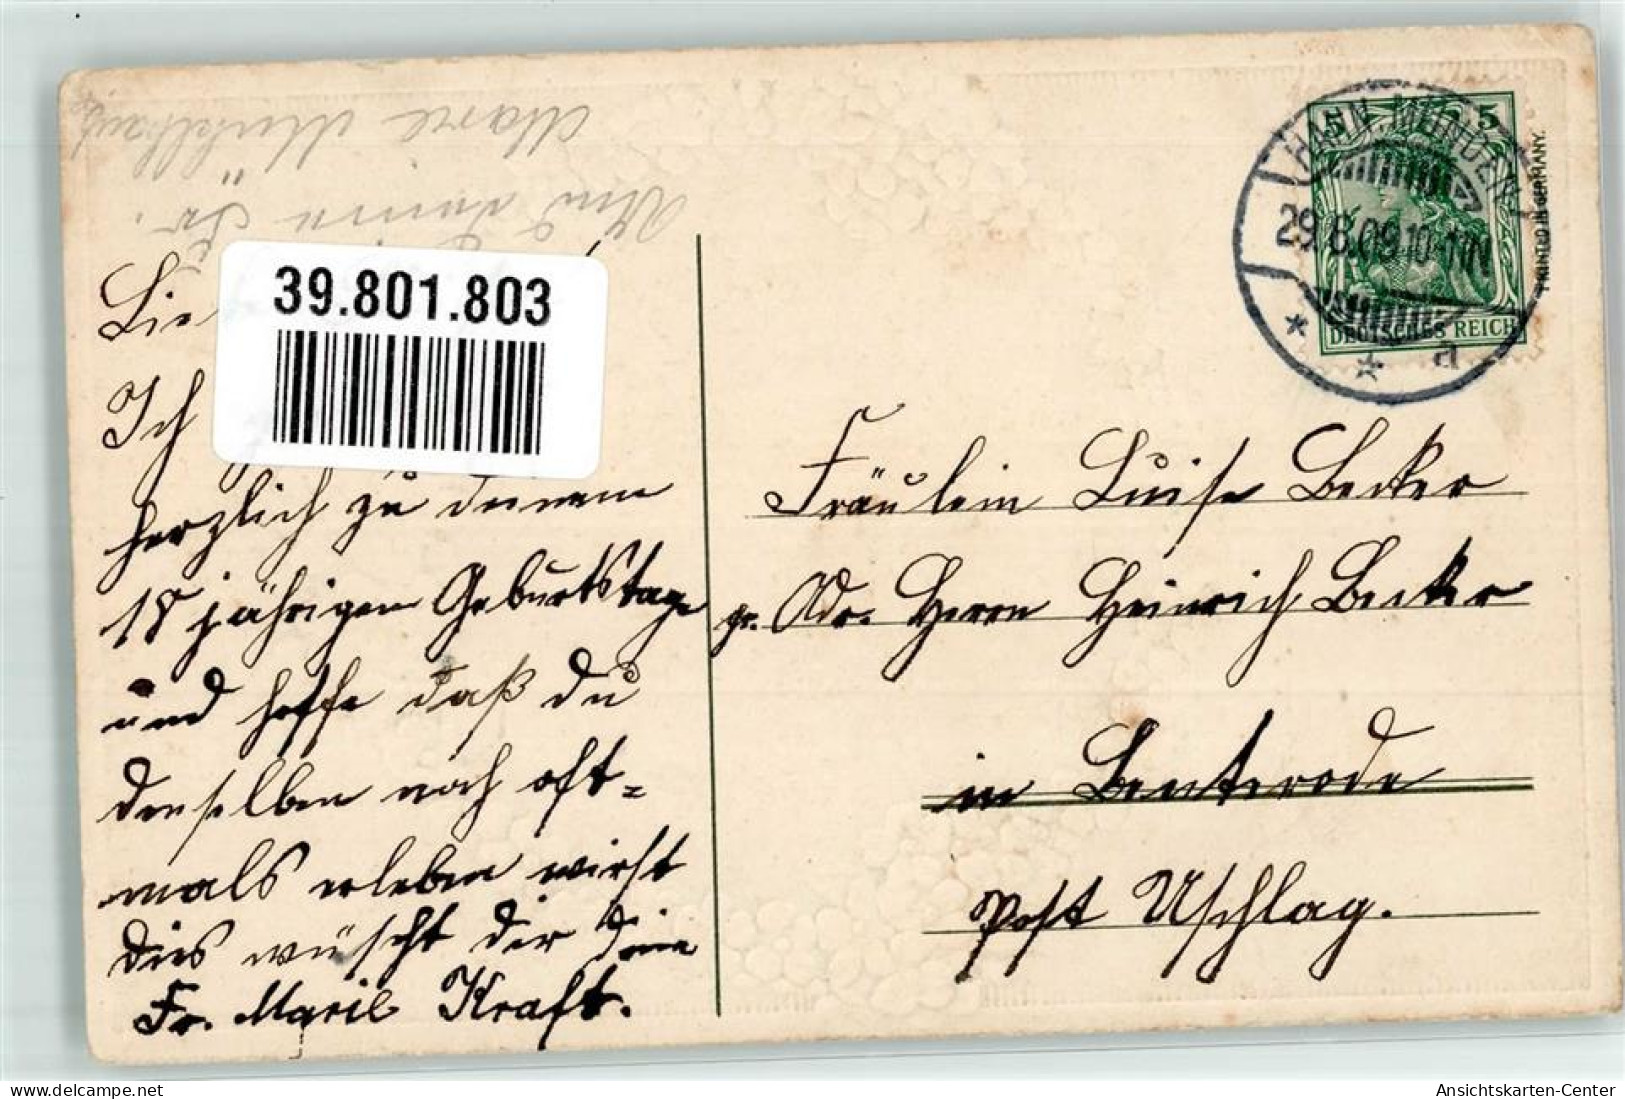 39.801.803
Lie
Ich
herzlich zu deinem
18 jährigen Geburtstage
und hoffe daß du
denselben noch oft=
mals erleben wirst
dies wünscht dir Deine
Fr. Marie Kraft.
HANN. MÜNDEN
29.6.09.10-11N
* * a
5 5
DEUTSCHES REICH
PRINTED IN GERMANY.
Fräulein Luise Becker
pr. Adr. Herrn Heinrich Becker
in Benterode
Post Uschlag.
delcampe.net
Ansichtskarten-Center